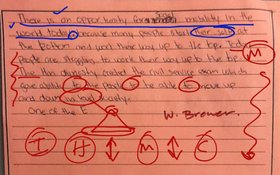 There is an opportunity for social mobility in the
world today because many people start their jobs at
the bottom and work their way up to the top. Today
people are struggling to work their way up to the top.
The Han dynasty created the civil service exam which
gave abilities to the people to be able to move up
and down
One of the E
W. Brower
M
I H M C